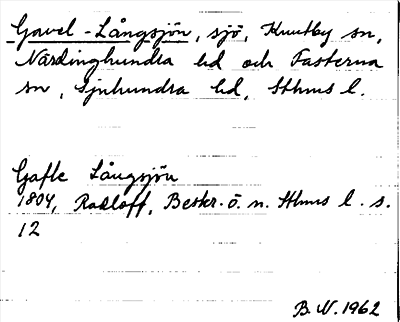 Gavel-Långsjön, sjö, Knutby sn,
Närdinghundra hd och Fasterna
sn, Sjuhundra hd, Sthms l.
Gafle Långsjön
1804, Radloff, Beskr. ö. n. Sthms l. s.
12
B.N. 1962